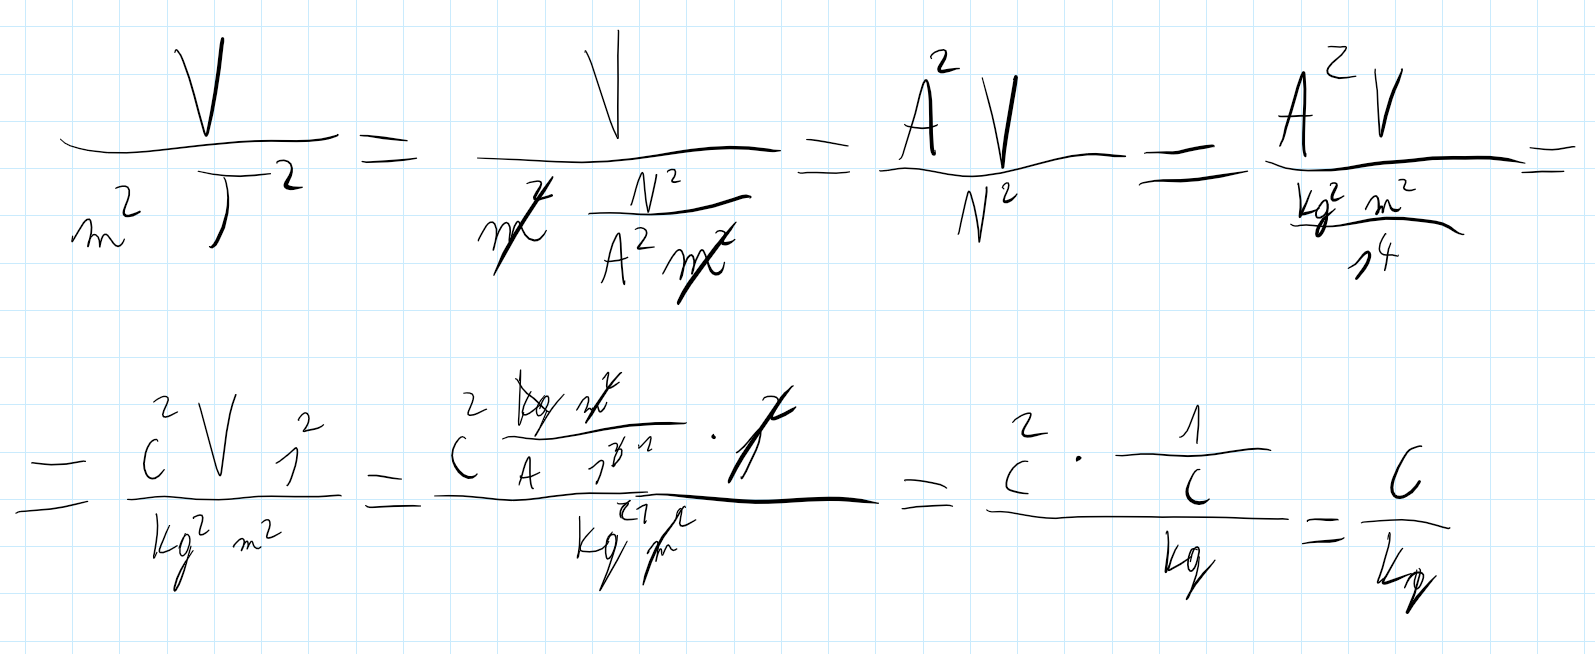 V / (m² T²) = V / (m² N² / (A² m²)) = A² V / N² = A² V / (kg² m² / s⁴) =
= C² V s² / (kg² m²) = C² (kg m² / (A s³ ¹)) · s² / (kg² ¹ m²) = C² · (1 / C) / kg = C / kg